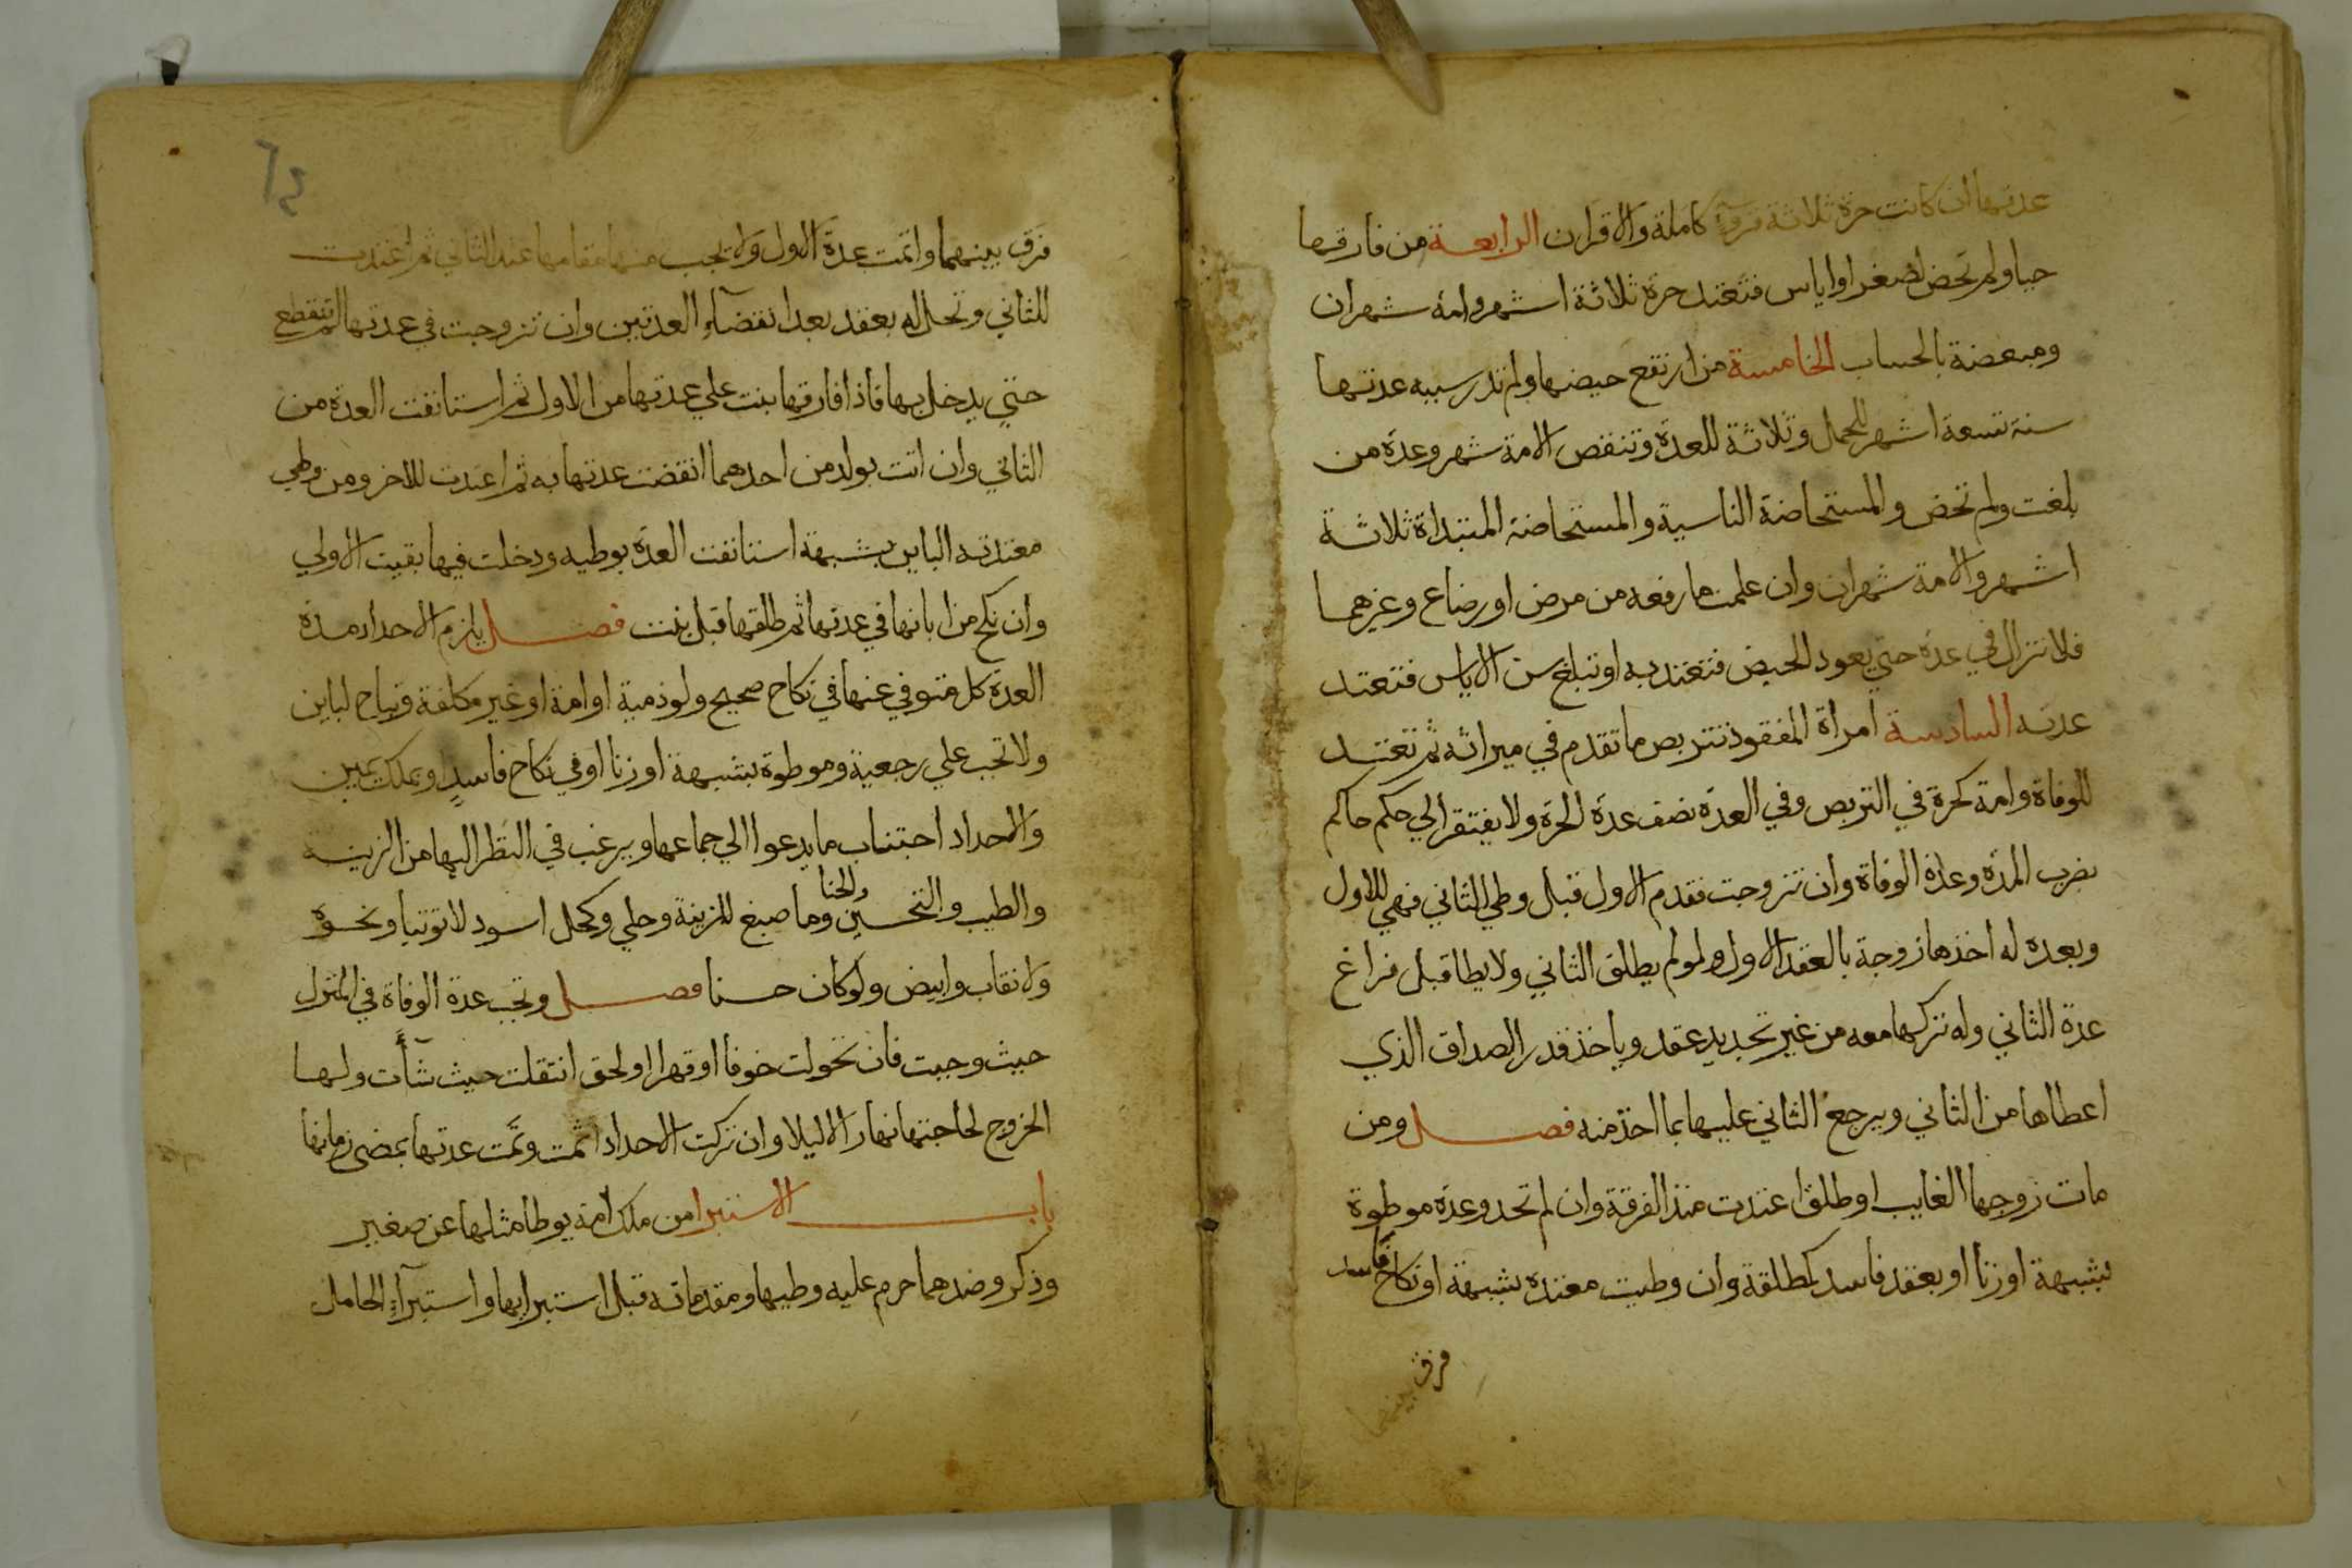 عدتها ان كانت حرة ثلاثة قروء كاملة والا قران الرابعة من فارقها
حيا ولم تحض لصغر او اياس فتعتد حرة ثلاثة اشهر وامة شهران
ومبعضة بالحساب الخامسة من ارتفع حيضها ولم تدر سببه عدتها
سنة تسعة اشهر للحمل وثلاثة للعدة وتنقص الامة شهر وعدة من
بلغت ولم تحض والمستحاضة الناسية والمستحاضة المبتداة ثلاثة
اشهر والامة شهران وان علمت ما رفعه من مرض او رضاع وغيرهما
فلا تزال في عدة حتي يعود الحيض فتعتد به او تبلغ سن الاياس فتعتد
عدته السادسة امراة المفقود تتربص ما تقدم في ميراثه ثم تعتد
للوفاة وامة كحرة في التربص وفي العدة نصف عدة الحرة ولا يفتقر الي حكم حاكم
بضرب المدة وعدة الوفاة وان تزوجت فقدم الاول قبل وطي الثاني فهي للاول
وبعده له اخذها زوجة بالعقد الاول ولو لم يطلق الثاني ولا يطا قبل فراغ
عدة الثاني وله تركها معه من غير تجديد عقد وياخذ قدر الصداق الذي
اعطاها من الثاني ويرجع الثاني عليها بما اخذ منه فصل ومن
مات زوجها الغايب او طلق اعتدت منذ الفرقة وان لم تحد وعدة موطوة
بشبهة او زنا او بعقد فاسد كمطلقة وان وطيت معتدة بشبهة او نكاح فاسد
فرق بينهما
فرق بينهما واتمت عدة الاول ولا يحسب منها مقامها عند الثاني ثم اعتدت
للثاني وتحل له بعقد بعد انقضاء العدتين وان تزوجت في عدتها لم تنقطع
حتي يدخل بها فاذا فارقها بنت علي عدتها من الاول ثم استانفت العدة من
الثاني وان اتت بولد من احدهما انقضت عدتها به ثم اعتدت للاخر ومن وطي
معتدته الباين بشبهة استانفت العدة بوطيه ودخلت فيها بقيت الاولي
وان نكح من ابانها في عدتها ثم طلقها قبل بنت فصل يلزم الاحداد مدة
العدة كل متوفي عنها في نكاح صحيح ولو ذمية او امة او غير مكلفة ويباح لباين
ولا تجب علي رجعية وموطوة بشبهة او زنا او في نكاح فاسد او بملك يمين
والاحداد اجتناب ما يدعوا الي جماعها ويرغب في النظر اليها من الزينة
والطيب والتحسين والحنا وما صبغ للزينة وحلي وكحل اسود لا توتيا ونحوه
ولا نقاب وابيض ولو كان حسنا فصل وتجب عدة الوفاة في المنزل
حيث وجبت فان تحولت خوفا او قهرا او لحق انتقلت حيث شآت ولها
الخروج لحاجتها نهارا لا ليلا وان تركت الاحداد اثمت وتمت عدتها بمضي زمانها
باب الاستبرا من ملك امة يوطا مثلها عن صغير
وذكر وضدهما حرم عليه وطيها ومقدماته قبل استبرايها واستبرآء الحامل